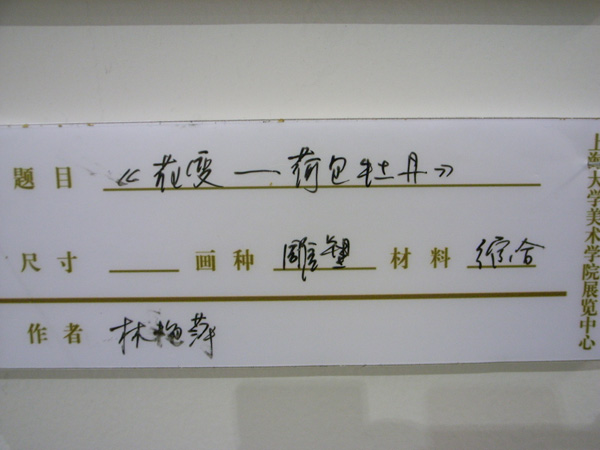 题目 《花变—荷包牡丹》
尺寸 画种 雕塑 材料 综合
作者 林梅萍
上海大学美术学院展览中心